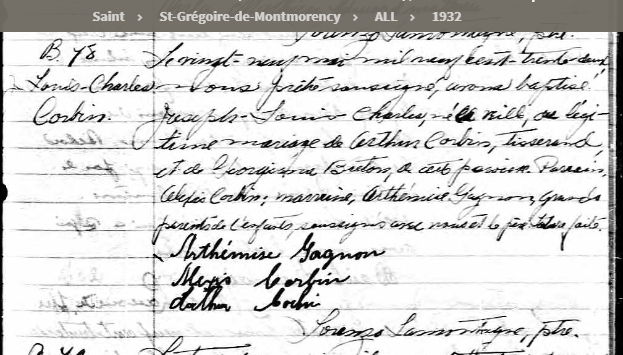 Saint › St-Grégoire-de-Montmorency › ALL › 1932
Lorenzo Lamontagne, ptre.
B. 78 Le vingt-neuf mai mil neuf cent-trente deux
Louis-Charles nous prêtre soussigné, avons baptisé
Corbin. Joseph-Louis Charles, né la veille, du légi-
time mariage de Arthur Corbin, tisserand,
et de Georgianna Breton, de cette paroisse. Parrain,
Alexis Corbin; marraine, Arthémise Gagnon, grands
parents de l'enfant, soussignés avec nous et le père. Lecture faite.
Arthémise Gagnon
Alexis Corbin
Arthur Corbin
Lorenzo Lamontagne, ptre.